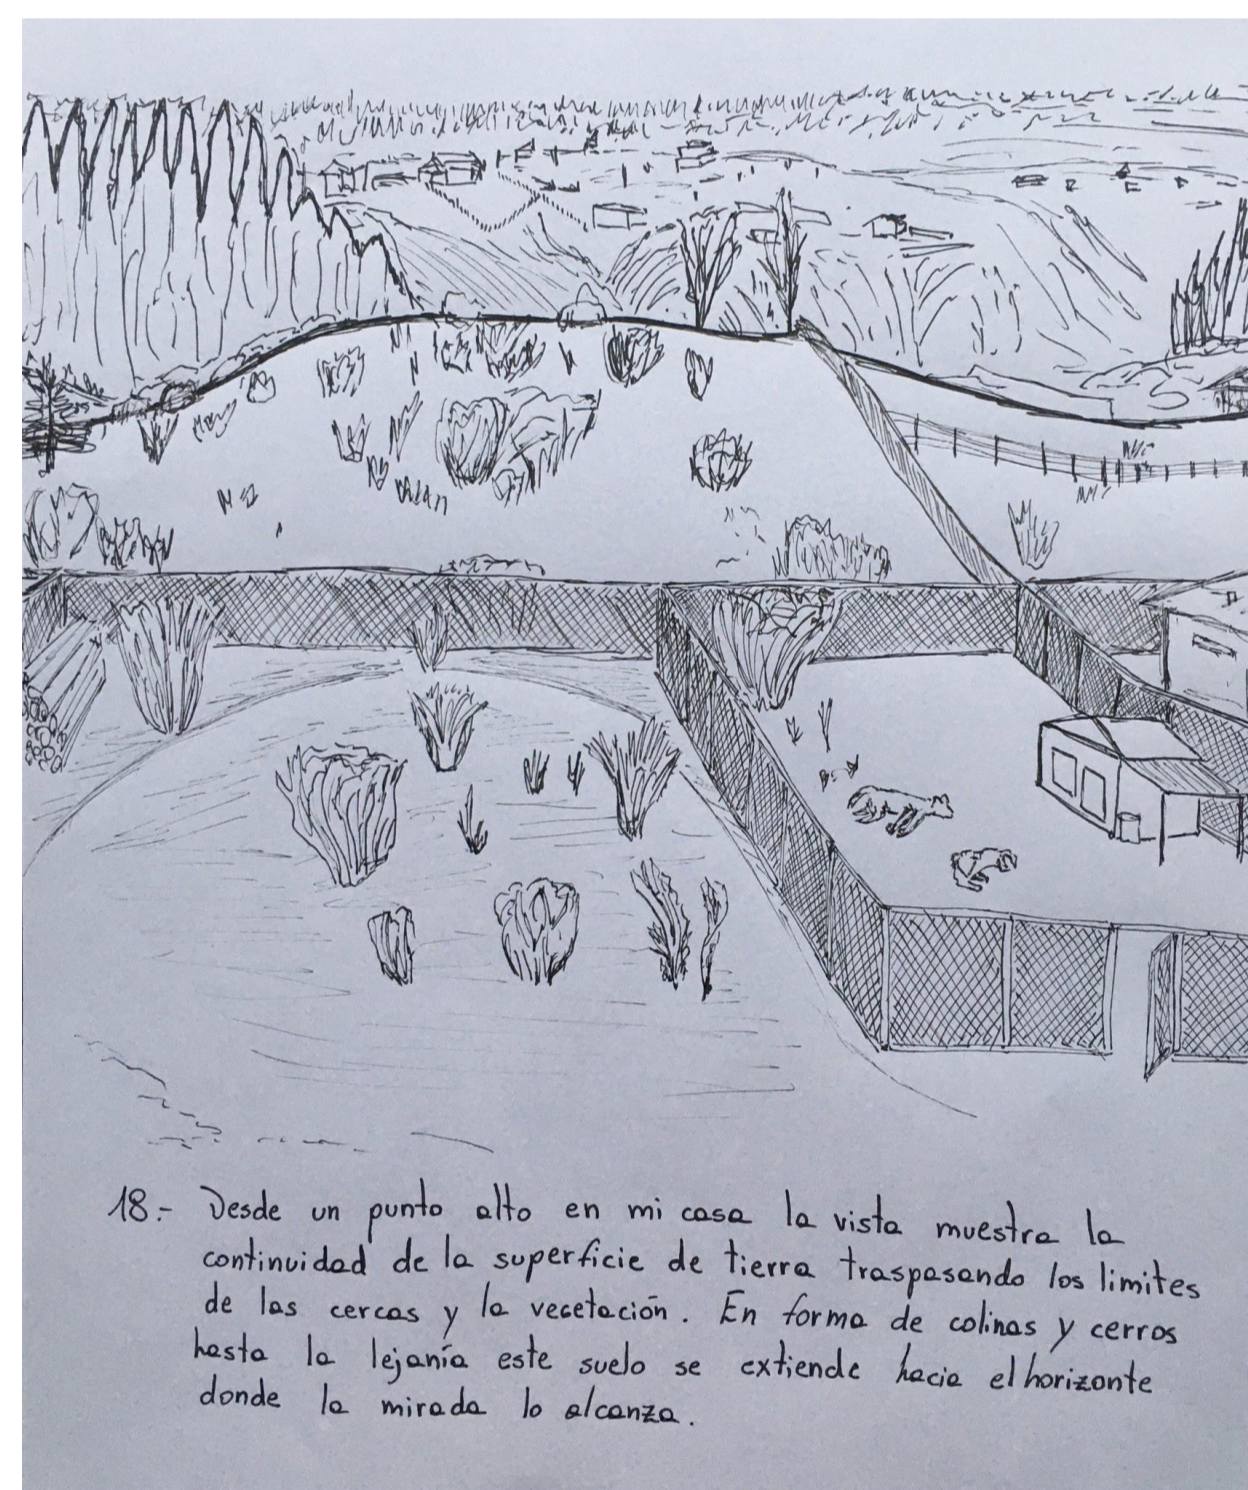 18.- Desde un punto alto en mi casa la vista muestra la
continuidad de la superficie de tierra traspasando los limites
de las cercas y la vegetación. En forma de colinas y cerros
hasta la lejanía este suelo se extiende hacia el horizonte
donde la mirada lo alcanza.